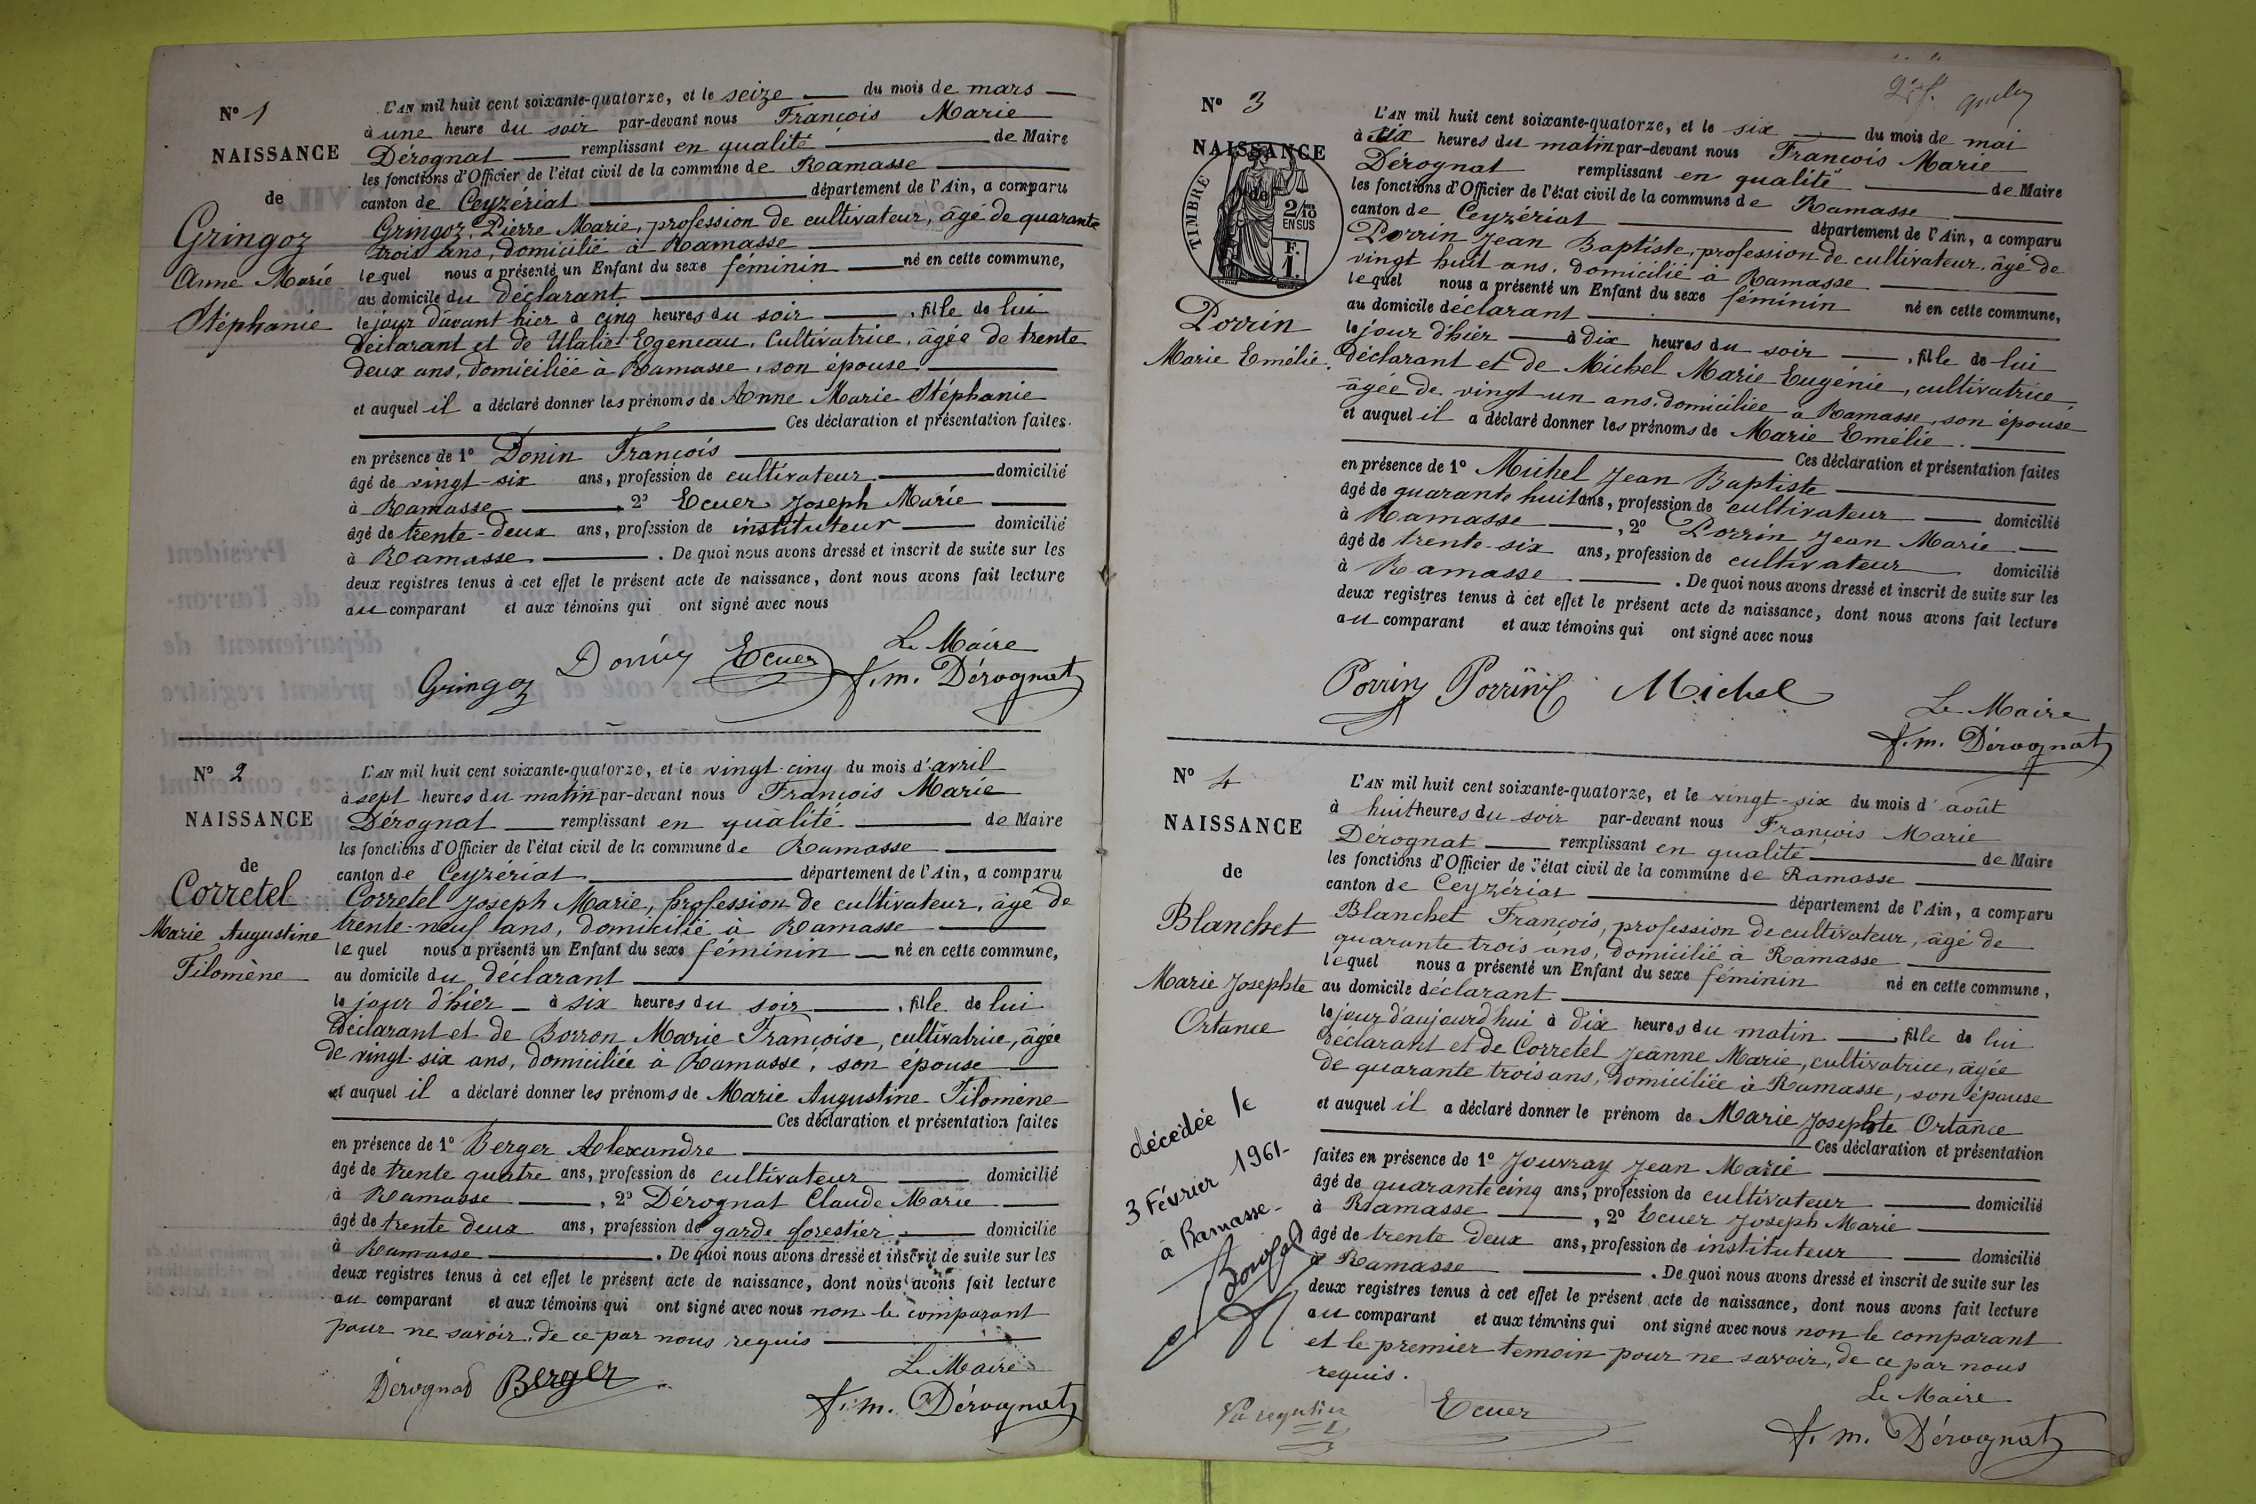 N° 1
NAISSANCE
de
Gringoz
Anne Marie
Stéphanie
L'AN mil huit cent soixante-quatorze, et le seize du mois de mars
à une heure du soir par-devant nous François Marie
Dérognat remplissant en qualité de Maire
les fonctions d'Officier de l'état civil de la commune de Ramasse
canton de Ceyzériat département de l'Ain, a comparu
Gringoz Pierre Marie, profession de cultivateur, âgé de quarante
trois ans, domicilié à Ramasse
lequel nous a présenté un Enfant du sexe féminin né en cette commune,
au domicile du déclarant
le jour d'avant hier à cinq heures du soir, fille de lui
déclarant et de Ulalie Egeneau, Cultivatrice, âgée de trente
deux ans, domiciliée à Ramasse, son épouse
et auquel il a déclaré donner les prénoms de Anne Marie Stéphanie
Ces déclaration et présentation faites
en présence de 1° Donin François
âgé de vingt-six ans, profession de cultivateur domicilié
à Ramasse 2° Ecuer Joseph Marie
âgé de trente-deux ans, profession de instituteur domicilié
à Ramasse. De quoi nous avons dressé et inscrit de suite sur les
deux registres tenus à cet effet le présent acte de naissance, dont nous avons fait lecture
au comparant et aux témoins qui ont signé avec nous
Le Maire
Gringoz Donin Ecuer f. m. Dérognat
N° 2
NAISSANCE
de
Corretel
Marie Augustine
Filomène
L'AN mil huit cent soixante-quatorze, et le vingt-cinq du mois d'avril
à sept heures du matin par-devant nous François Marie
Dérognat remplissant en qualité de Maire
les fonctions d'Officier de l'état civil de la commune de Ramasse
canton de Ceyzériat département de l'Ain, a comparu
Corretel Joseph Marie, profession de cultivateur, âgé de
trente-neuf ans, domicilié à Ramasse
lequel nous a présenté un Enfant du sexe féminin né en cette commune,
au domicile du déclarant
le jour d'hier à six heures du soir, fille de lui
Déclarant et de Borron Marie Françoise, cultivatrice, âgée
de vingt-six ans, domiciliée à Ramasse, son épouse
et auquel il a déclaré donner les prénoms de Marie Augustine Filomène
Ces déclaration et présentation faites
en présence de 1° Berger Alexandre
âgé de trente quatre ans, profession de cultivateur domicilié
à Ramasse, 2° Dérognat Claude Marie
âgé de trente deux ans, profession de garde forestier domicilié
à Ramasse. De quoi nous avons dressé et inscrit de suite sur les
deux registres tenus à cet effet le présent acte de naissance, dont nous avons fait lecture
au comparant et aux témoins qui ont signé avec nous non le comparant
pour ne savoir, de ce par nous requis
Le Maire
Dérognat Berger f. m. Dérognat
N° 3
NAISSANCE
de
TIMBRE
2/10
EN SUS
F.
1.
Porrin
Marie Emélie.
L'AN mil huit cent soixante-quatorze, et le six du mois de mai
à six heures du matin par-devant nous François Marie
Dérognat remplissant en qualité de Maire
les fonctions d'Officier de l'état civil de la commune de Ramasse
canton de Ceyzériat département de l'Ain, a comparu
Porrin Jean Baptiste, profession de cultivateur, âgé de
vingt huit ans, domicilié à Ramasse
lequel nous a présenté un Enfant du sexe féminin né en cette commune,
au domicile déclarant
le jour d'hier à Dix heures du soir, fille de lui
déclarant et de Michel Marie Eugénie, cultivatrice
âgée de vingt-un ans, domiciliée à Ramasse, son épouse
et auquel il a déclaré donner les prénoms de Marie Emélie.
Ces déclaration et présentation faites
en présence de 1° Michel Jean Baptiste
âgé de quarante huit ans, profession de cultivateur domicilié
à Ramasse, 2° Porrin Jean Marie
âgé de trente-six ans, profession de cultivateur domicilié
à Ramasse. De quoi nous avons dressé et inscrit de suite sur les
deux registres tenus à cet effet le présent acte de naissance, dont nous avons fait lecture
au comparant et aux témoins qui ont signé avec nous
Porrin Porrin Michel
Le Maire
f. m. Dérognat
N° 4
NAISSANCE
de
Blanchet
Marie Josephte
Ortance
L'AN mil huit cent soixante-quatorze, et le vingt-six du mois d'août
à huit heures du soir par-devant nous François Marie
Dérognat remplissant en qualité de Maire
les fonctions d'Officier de l'état civil de la commune de Ramasse
canton de Ceyzériat département de l'Ain, a comparu
Blanchet François, profession de cultivateur, âgé de
quarante trois ans, domicilié à Ramasse
lequel nous a présenté un Enfant du sexe féminin né en cette commune,
au domicile déclarant
le jour d'aujourd'hui à dix heures du matin, fille de lui
Déclarant et de Corretel Jeanne Marie, cultivatrice, âgée
de quarante trois ans, domiciliée à Ramasse, son épouse
et auquel il a déclaré donner le prénom de Marie Josephte Ortance
Ces déclaration et présentation
faites en présence de 1° Jouvray Jean Marie
âgé de quarante cinq ans, profession de cultivateur domicilié
à Ramasse, 2° Ecuer Joseph Marie
âgé de trente deux ans, profession de instituteur domicilié
à Ramasse. De quoi nous avons dressé et inscrit de suite sur les
deux registres tenus à cet effet le présent acte de naissance, dont nous avons fait lecture
au comparant et aux témoins qui ont signé avec nous non le comparant
et le premier temoin pour ne savoir, de ce par nous
requis.
Le Maire
Ecuer f. m. Dérognat
décédée le
3 Février 1961-
à Ramasse-